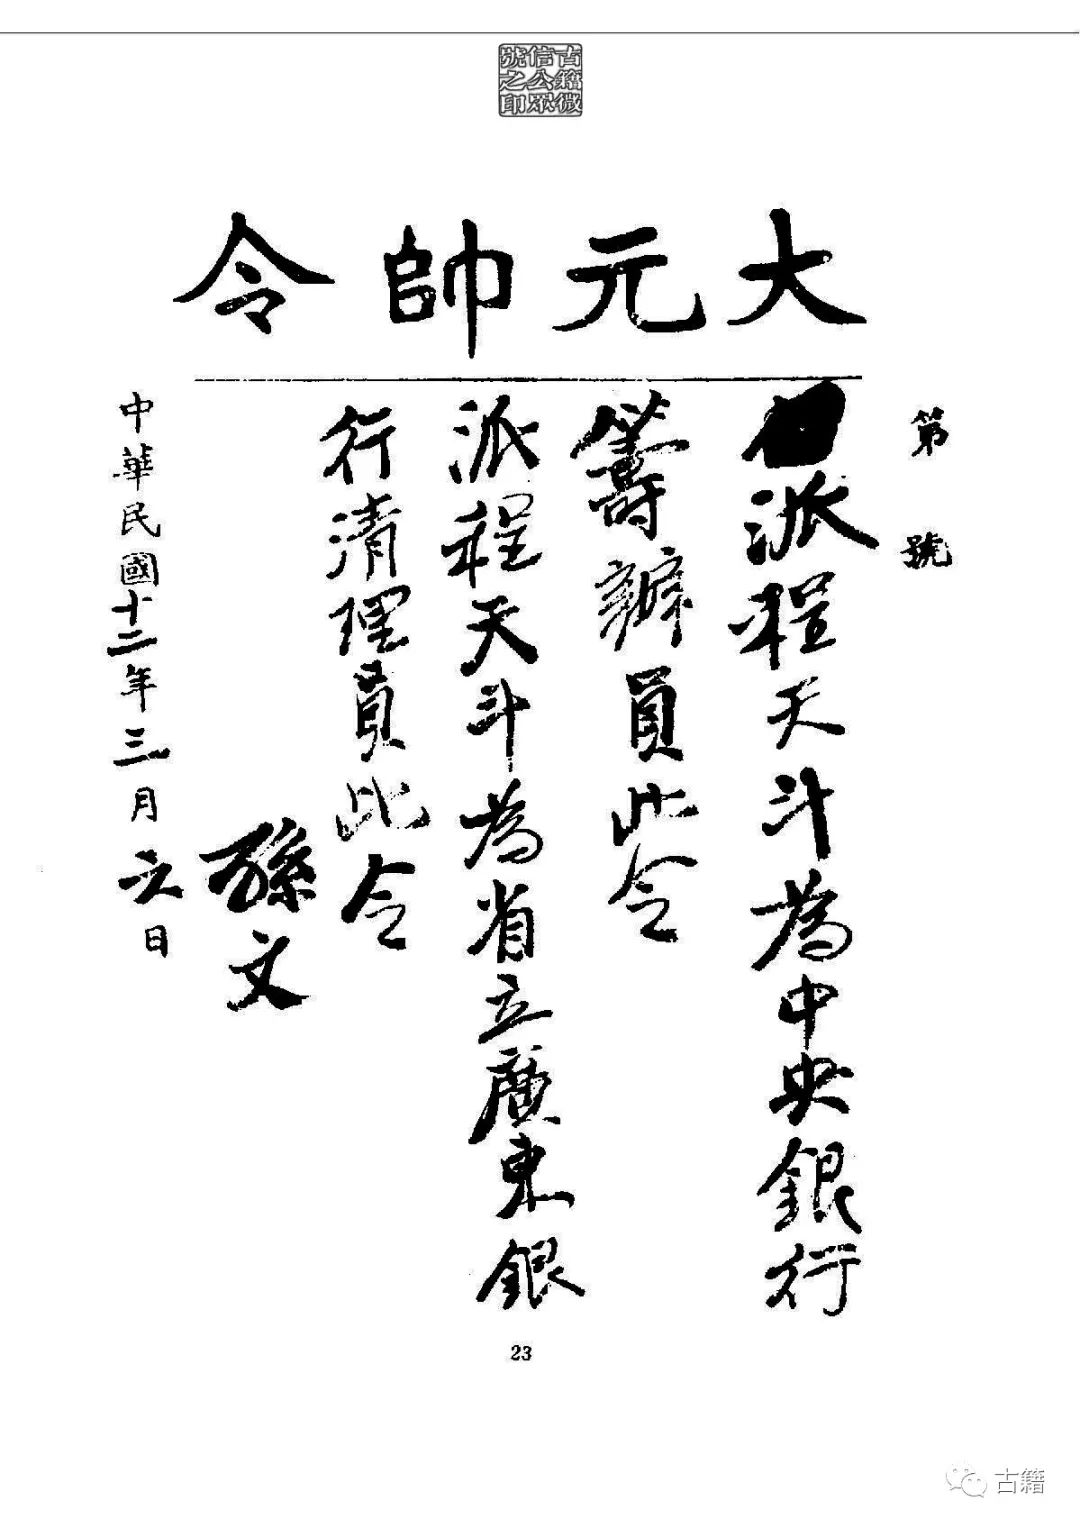 古籍微
信公眾
號之印
大元帥令
第 號
派程天斗為中央銀行
籌辦員此令
派程天斗為省立廣東銀
行清理員此令
孫文
中華民國十二年三月六日
23
古籍